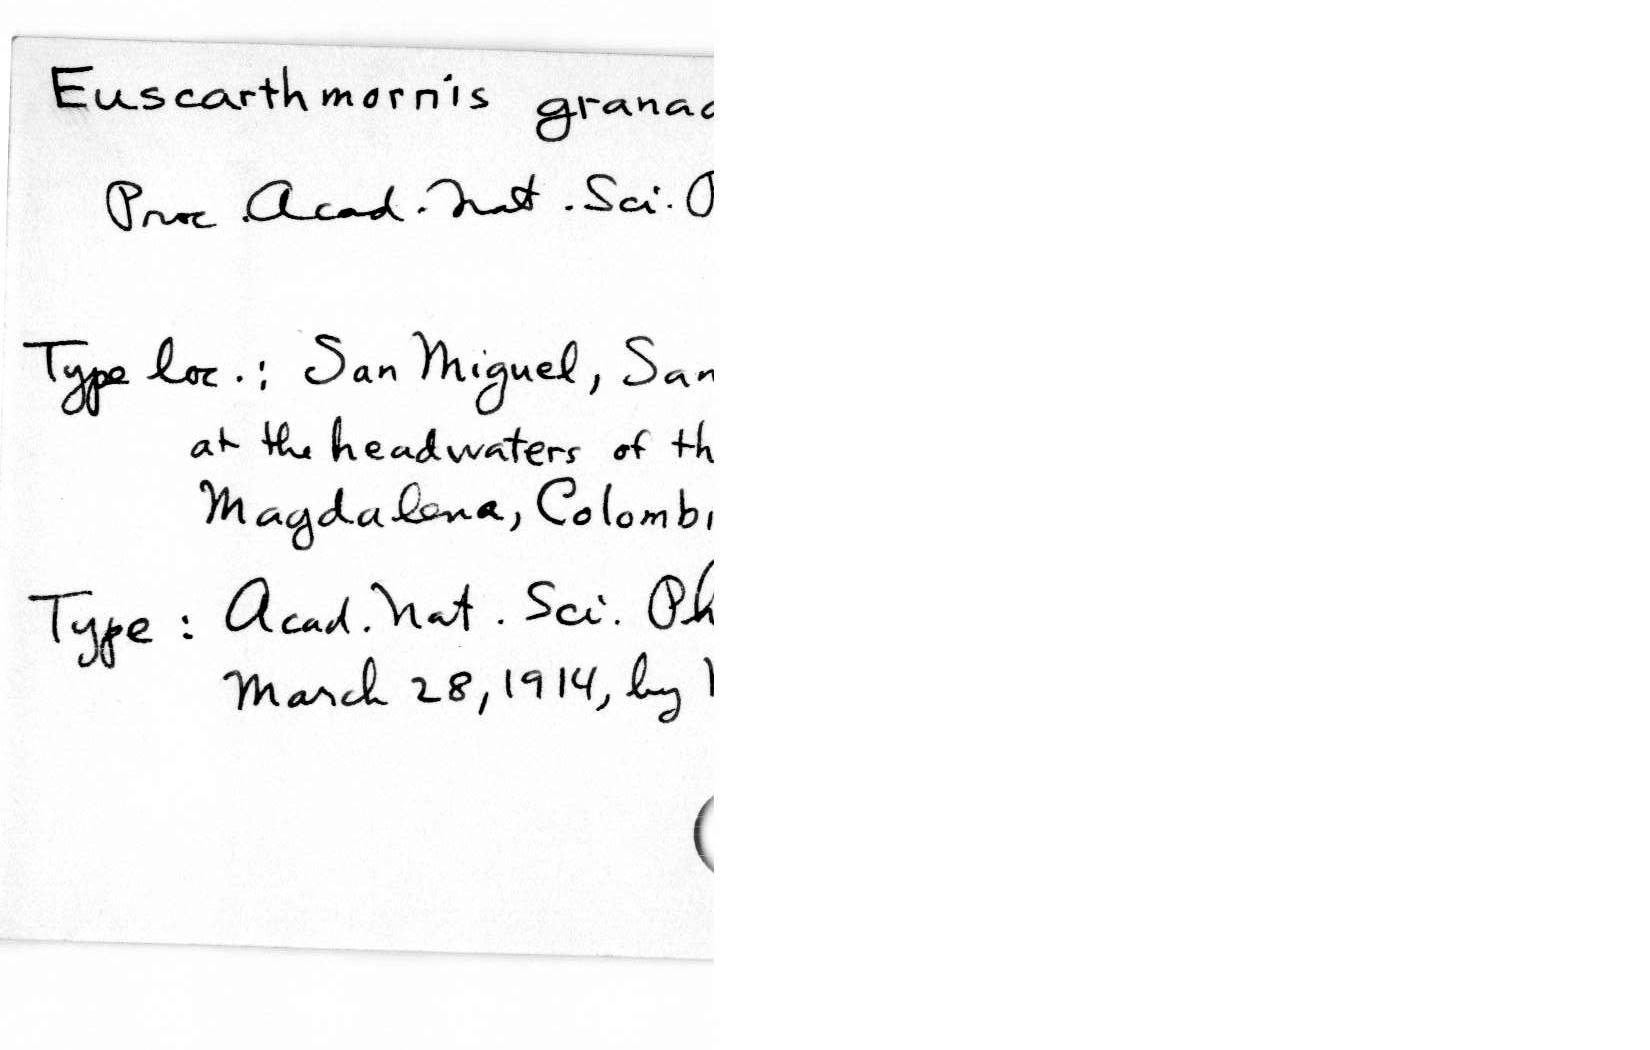 Euscarthmornis granad
Proc. Acad. Nat. Sci. P
Type loc.: San Miguel, San
at the headwaters of th
Magdalena, Colombi
Type: Acad. Nat. Sci. Ph
March 28, 1914, by